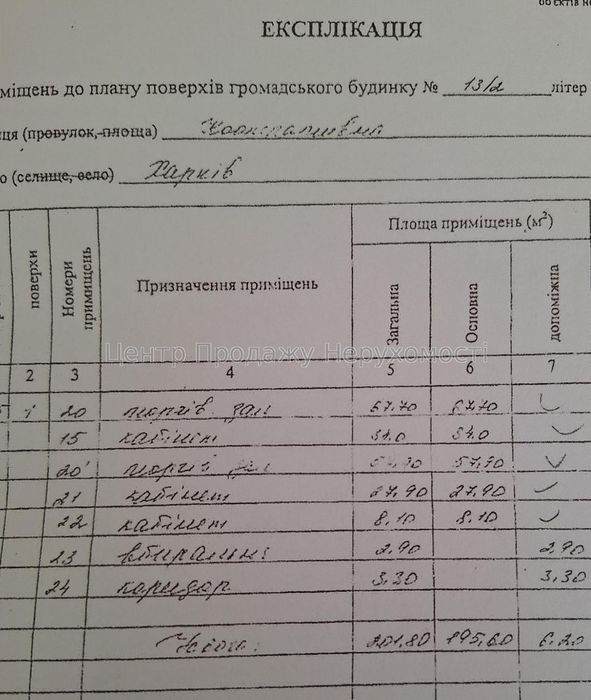 ЕКСПЛІКАЦІЯ
міщень до плану поверхів громадського будинку № 13/2 літер
ця (провулок, площа)
о (селище, село) Харків
поверхи Номери примищень Призначення приміщень Площа приміщень (м²)
Загальна Основна допоміжна
Центр Продажу Нерухомості
2 3 4 5 6 7
1 20 торгів. зал 67.70 67.70
15 кабінет 34.0 34.0
20' торгів зал 57,90
21 кабінет 27,90 27.90
22 кабінет 8.10 8.10
23 2.90 2,90
24 коридор 3,30 3,30
201,80 195,60 6.20